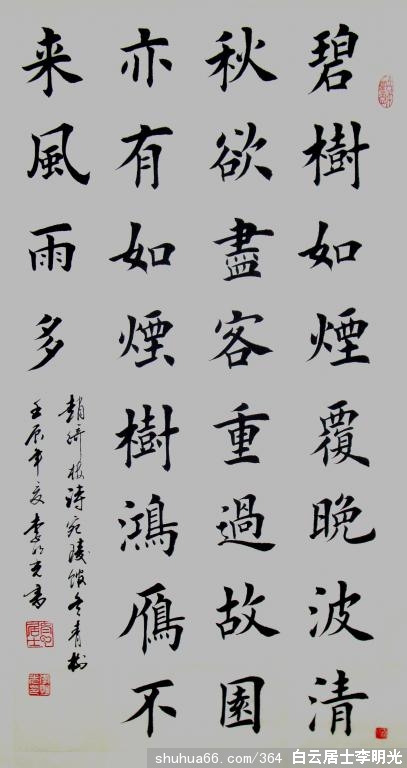 碧樹如煙覆晚波清
秋欲盡客重過故園
亦有如煙樹鴻鴈不
来風雨多
趙嘏詩宛陵館冬青樹
壬辰年夏李明光書
shuhua66.com/364 白云居士李明光